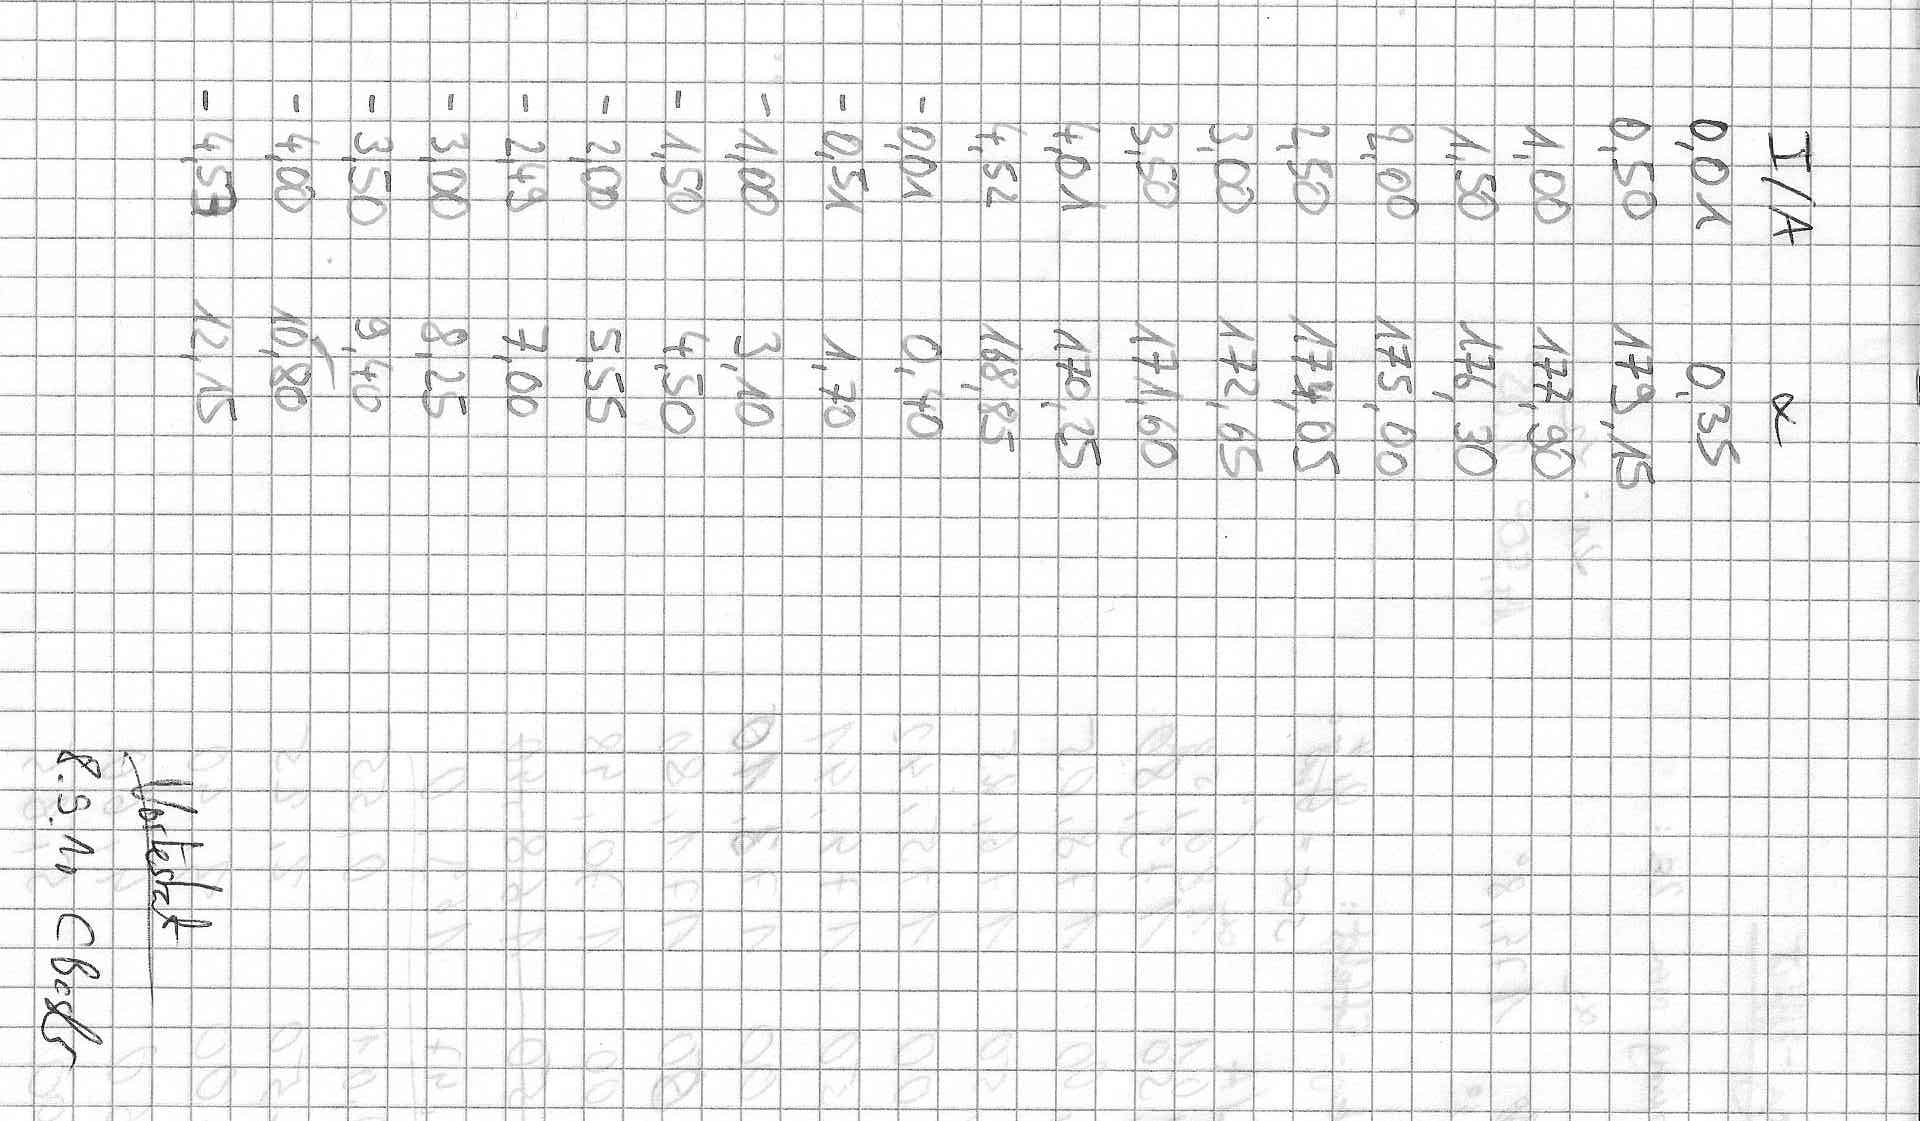 I/A α
0,01 0,35
0,50 179,15
1,00 177,90
1,50 176,30
2,00 175,00
2,50 174,05
3,00 172,65
3,50 171,60
4,01 170,25
4,52 168,85
- 0,01 0,40
- 0,51 1,70
- 1,00 3,10
- 1,50 4,50
- 2,00 5,55
- 2,49 7,00
- 3,00 8,25
- 3,50 9,40
- 4,00 10,80
- 4,53 12,15
8.9.10